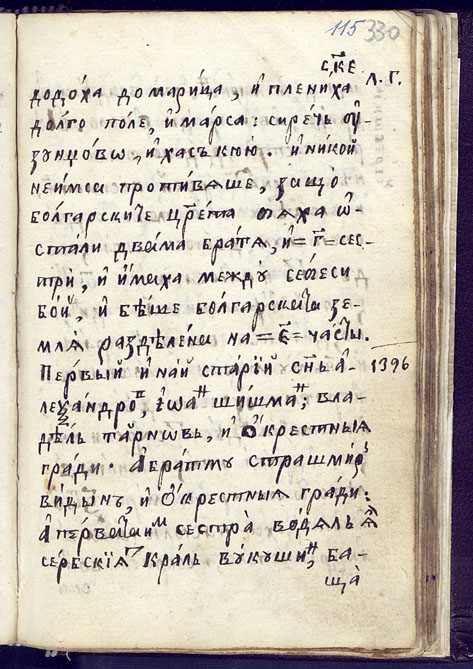 115 330
сⷦ҇е
л. г.
додоха до марица, и плениха
долго поле, и марса: сиречь оу-
зунцово, и хаскюю. и никой
неимса противѧше, защо
болгарските цр҃ета бѧха ѡ-
стали двама братѧ, и =г҃= сес-
три, и имаха между себеси
бой, и бѣше болгарската зе-
млѧ разделена на =є҃= части.
Первый и най старїй сн҃ъ а-
леѯандроⷡ, їѡаⷩ шишмаⷩ; вла-
дѣлъ тарновъ, и ѻкрестныѧ
гради. а братъ страшмиⷬ
видынъ, и ѻкрестныѧ гради:
а перваѧ иⷨ сестра водѧлъ ѧ
сербскїѧⷮ краль вукашиⷩ, ба-
ща
1396